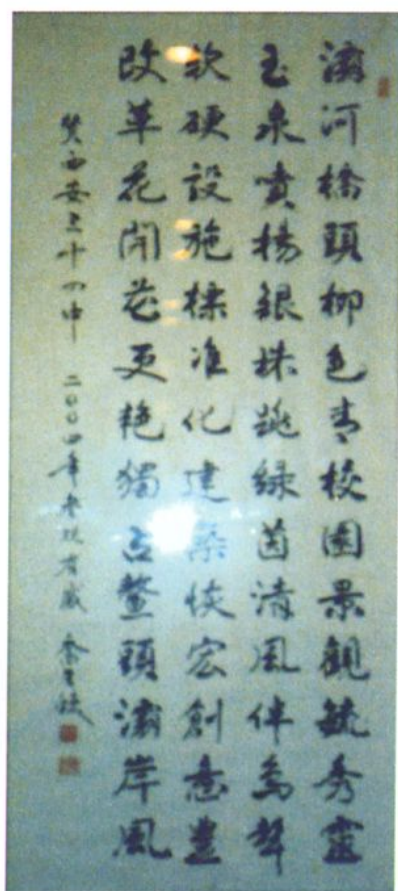 灞河橋頭柳色青校園景觀毓秀靈
玉泉噴楊銀珠跳綠茵清風伴鳥聲
軟硬設施標准化建築恢宏創意豊
改革花開花更艳獨占鳌頭灞岸風
西安上十四中 二〇〇四年參观有感